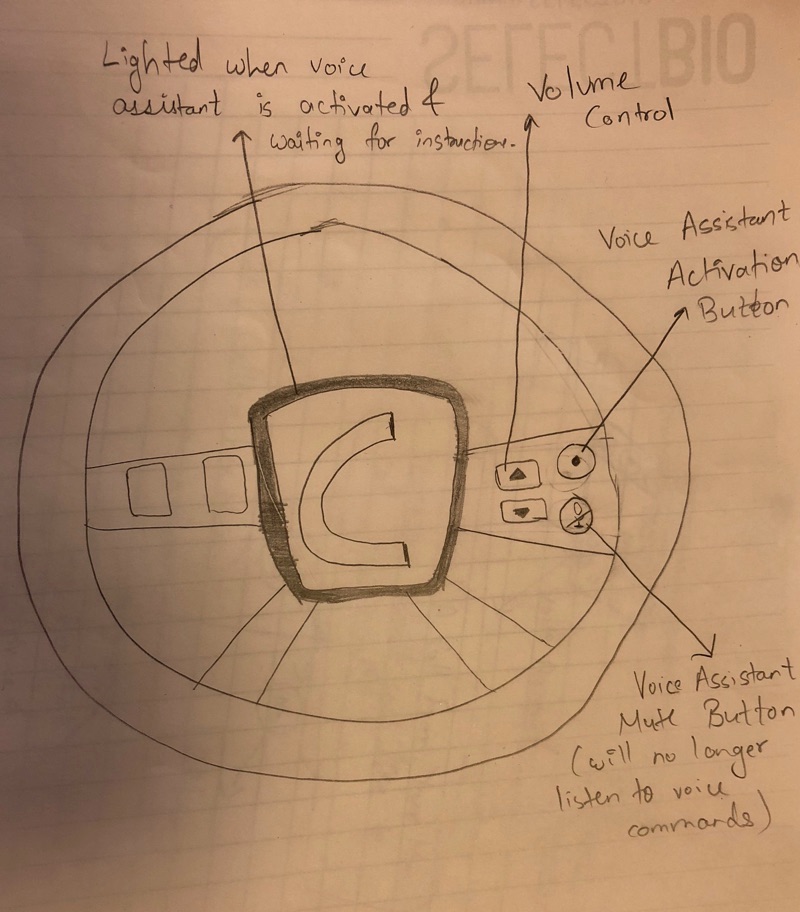 SELECTBIO
Lighted when voice
assistant is activated &
waiting for instruction.
Volume
Control
Voice Assistant
Activation
Button
Voice Assistant
Mute Button
(will no longer
listen to voice
commands)